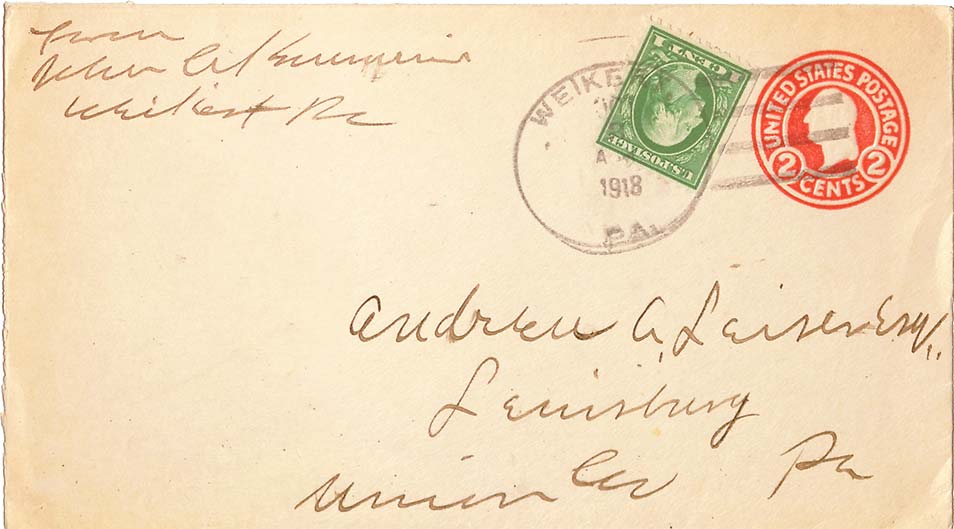 From
Weikert Pa
1 CENT 1
U.S. POSTAGE
WEIKE
A
1918
PA.
UNITED STATES POSTAGE
2 CENTS 2
Andrew A. Leiser Esq.
Lewisburg
Union Co Pa